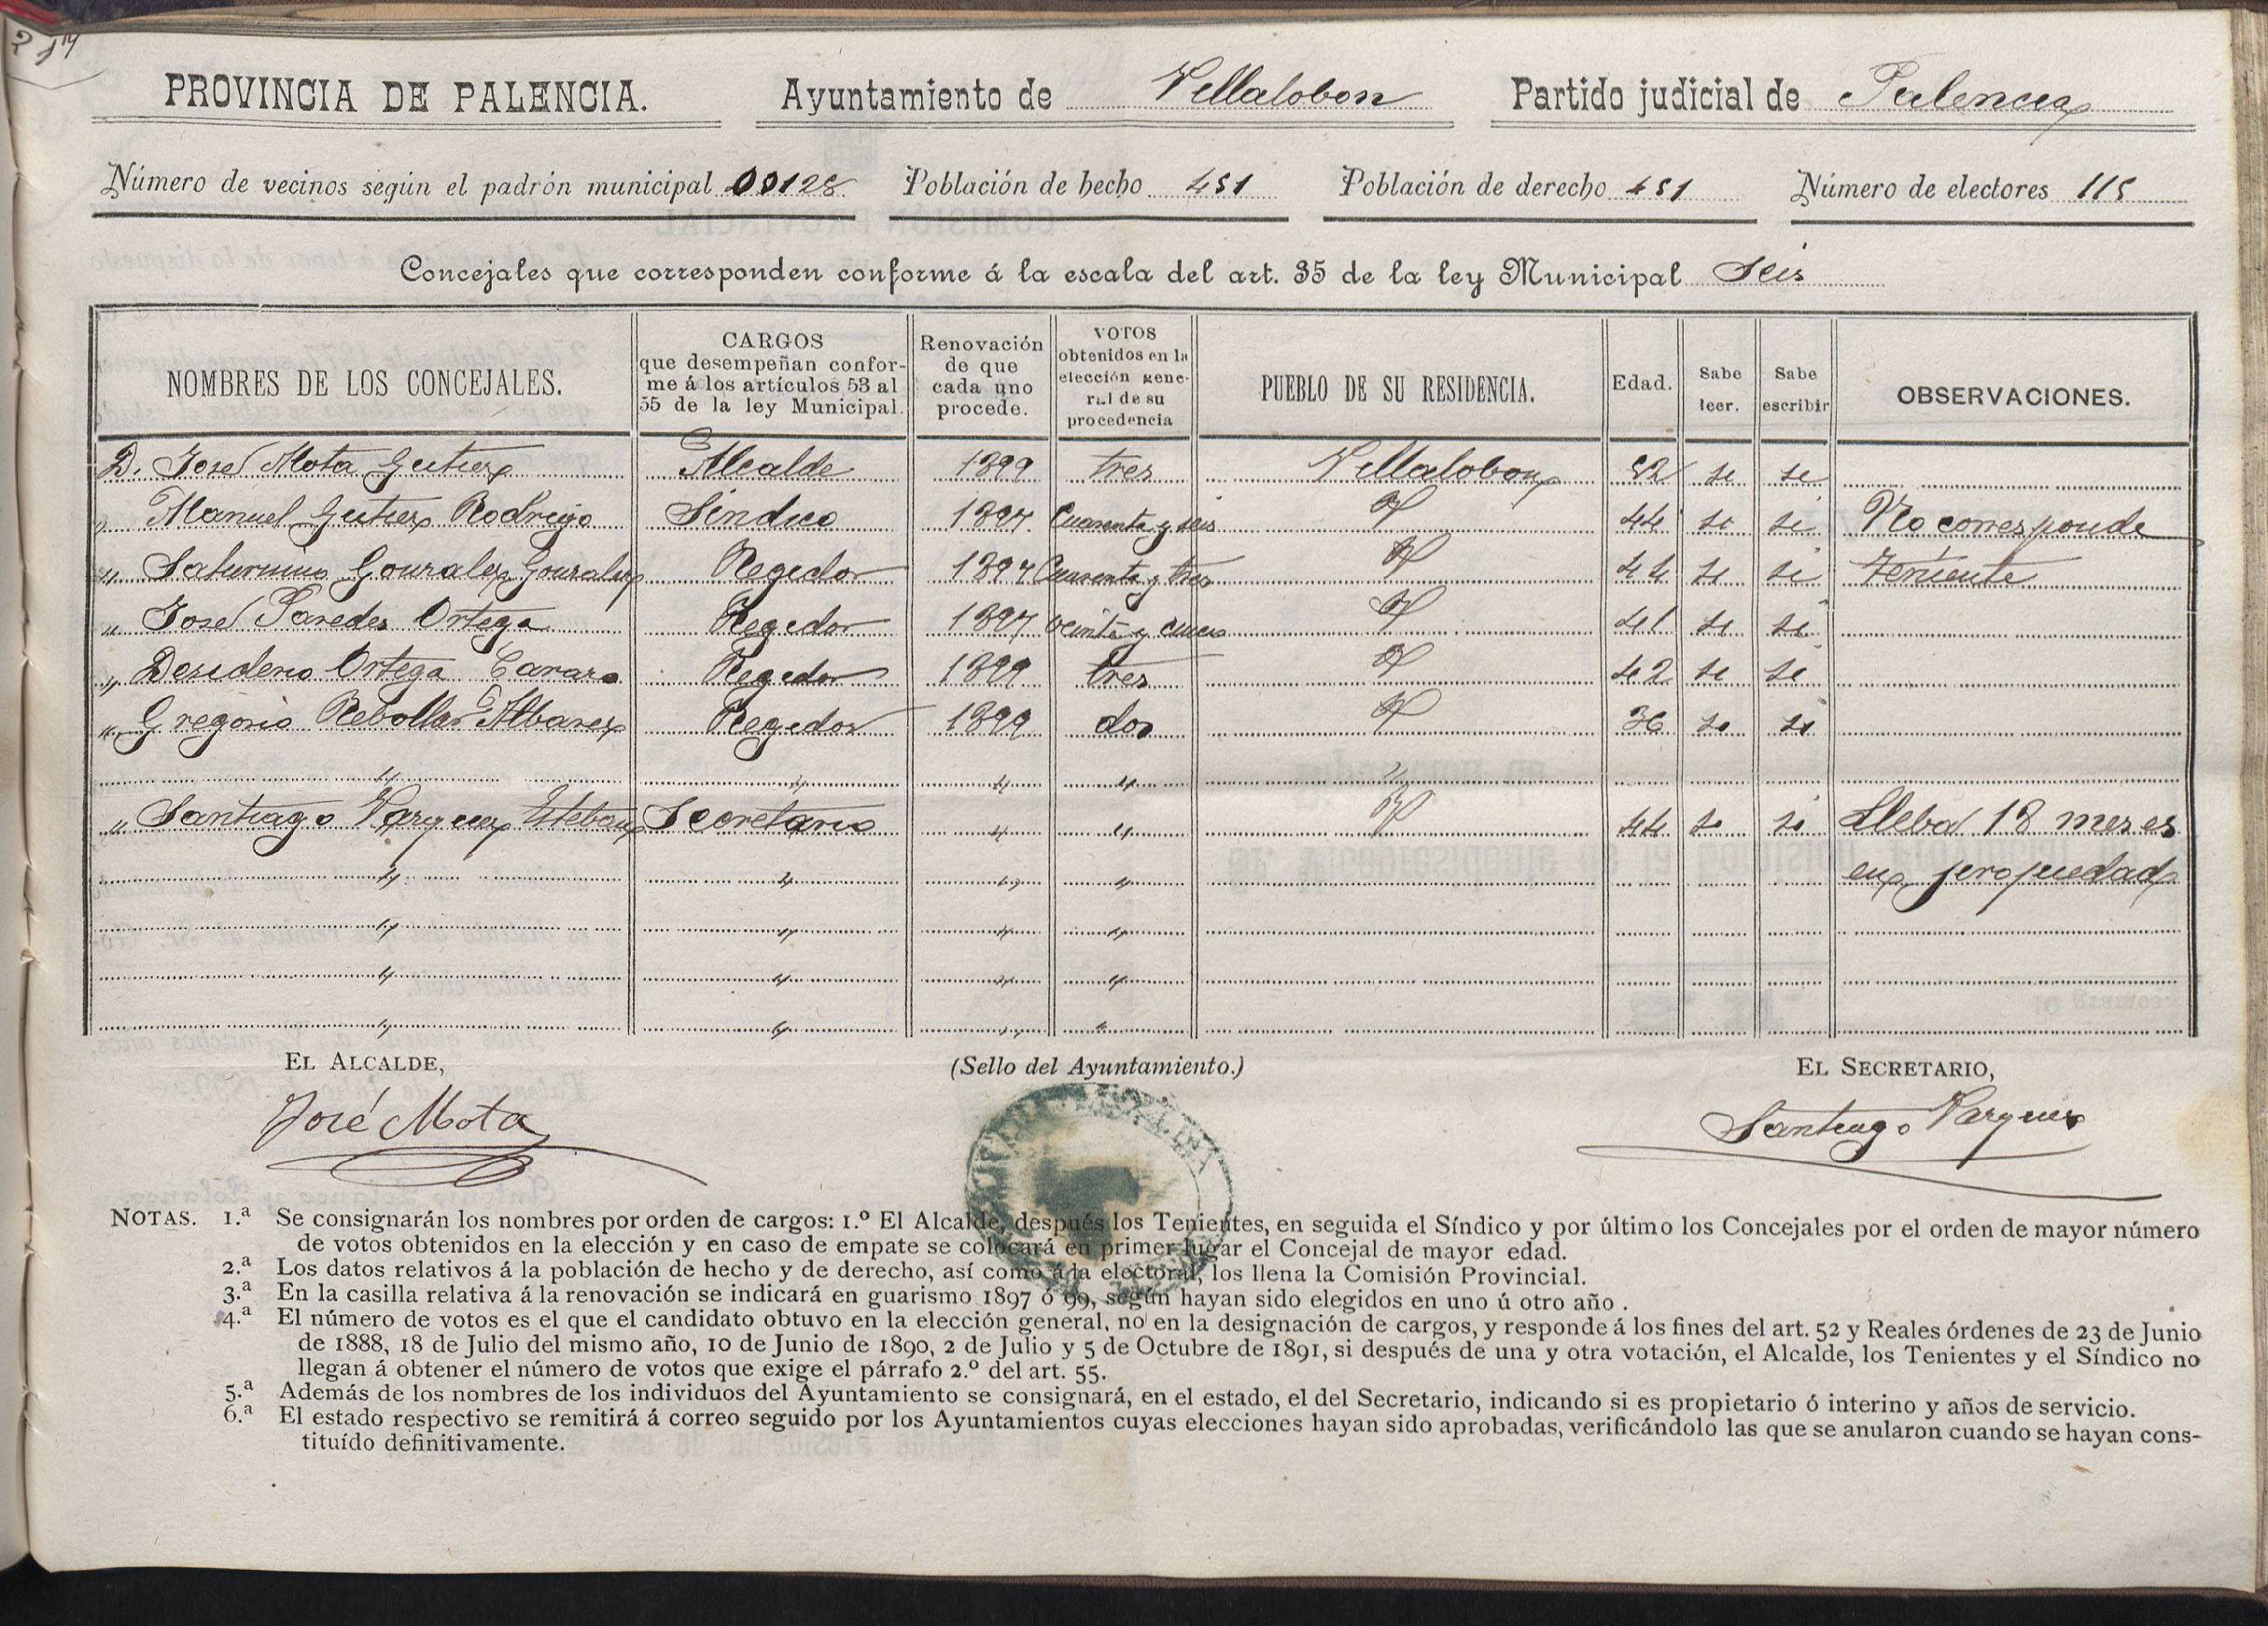 217
PROVINCIA DE PALENCIA. Ayuntamiento de Villalobon Partido judicial de Palencia
Número de vecinos según el padrón municipal 00128 Población de hecho 451 Población de derecho 451 Número de electores 115
Concejales que corresponden conforme á la escala del art. 35 de la ley Municipal Seis
NOMBRES DE LOS CONCEJALES. CARGOS que desempeñan conforme á los artículos 53 al 55 de la ley Municipal. Renovación de que cada uno procede. VOTOS obtenidos en la elección general de su procedencia PUEBLO DE SU RESIDENCIA. Edad. Sabe leer. Sabe escribir OBSERVACIONES.
D. José Mota Gutierz Alcalde 1899 tres Villalobon 52 si si
" Manuel Gutierz Rodrigo Sindico 1897 Cuarenta y seis Yd 44 si si No corresponde
" Saturnino Gonzalez Gonzalez Regidor 1897 Cuarenta y tres Yd 44 si si Teniente
" José Paredes Ortega Regidor 1897 veinte y cinco Yd 41 si si
" Desiderio Ortega Regidor 1899 tres Yd 42 si si
" Gregorio Rebollar Albarez Regidor 1899 dos Yd 36 si si
" " " " "
" Santiago Vazquez Esteban Secretario " " Yd 44 si si Lleba 18 meses
" " " " en propiedad
" " " "
" " " "
" " " "
EL ALCALDE, (Sello del Ayuntamiento.) EL SECRETARIO,
José Mota Santiago Vazquez
NOTAS. 1.ª Se consignarán los nombres por orden de cargos: 1.º El Alcalde, después los Tenientes, en seguida el Síndico y por último los Concejales por el orden de mayor número
de votos obtenidos en la elección y en caso de empate se colocará en primer lugar el Concejal de mayor edad.
2.ª Los datos relativos á la población de hecho y de derecho, así como á la electoral, los llena la Comisión Provincial.
3.ª En la casilla relativa á la renovación se indicará en guarismo 1897 ó 99, según hayan sido elegidos en uno ú otro año .
4.ª El número de votos es el que el candidato obtuvo en la elección general, no en la designación de cargos, y responde á los fines del art. 52 y Reales órdenes de 23 de Junio
de 1888, 18 de Julio del mismo año, 10 de Junio de 1890, 2 de Julio y 5 de Octubre de 1891, si después de una y otra votación, el Alcalde, los Tenientes y el Síndico no
llegan á obtener el número de votos que exige el párrafo 2.º del art. 55.
5.ª Además de los nombres de los individuos del Ayuntamiento se consignará, en el estado, el del Secretario, indicando si es propietario ó interino y años de servicio.
6.ª El estado respectivo se remitirá á correo seguido por los Ayuntamientos cuyas elecciones hayan sido aprobadas, verificándolo las que se anularon cuando se hayan cons-
tituído definitivamente.